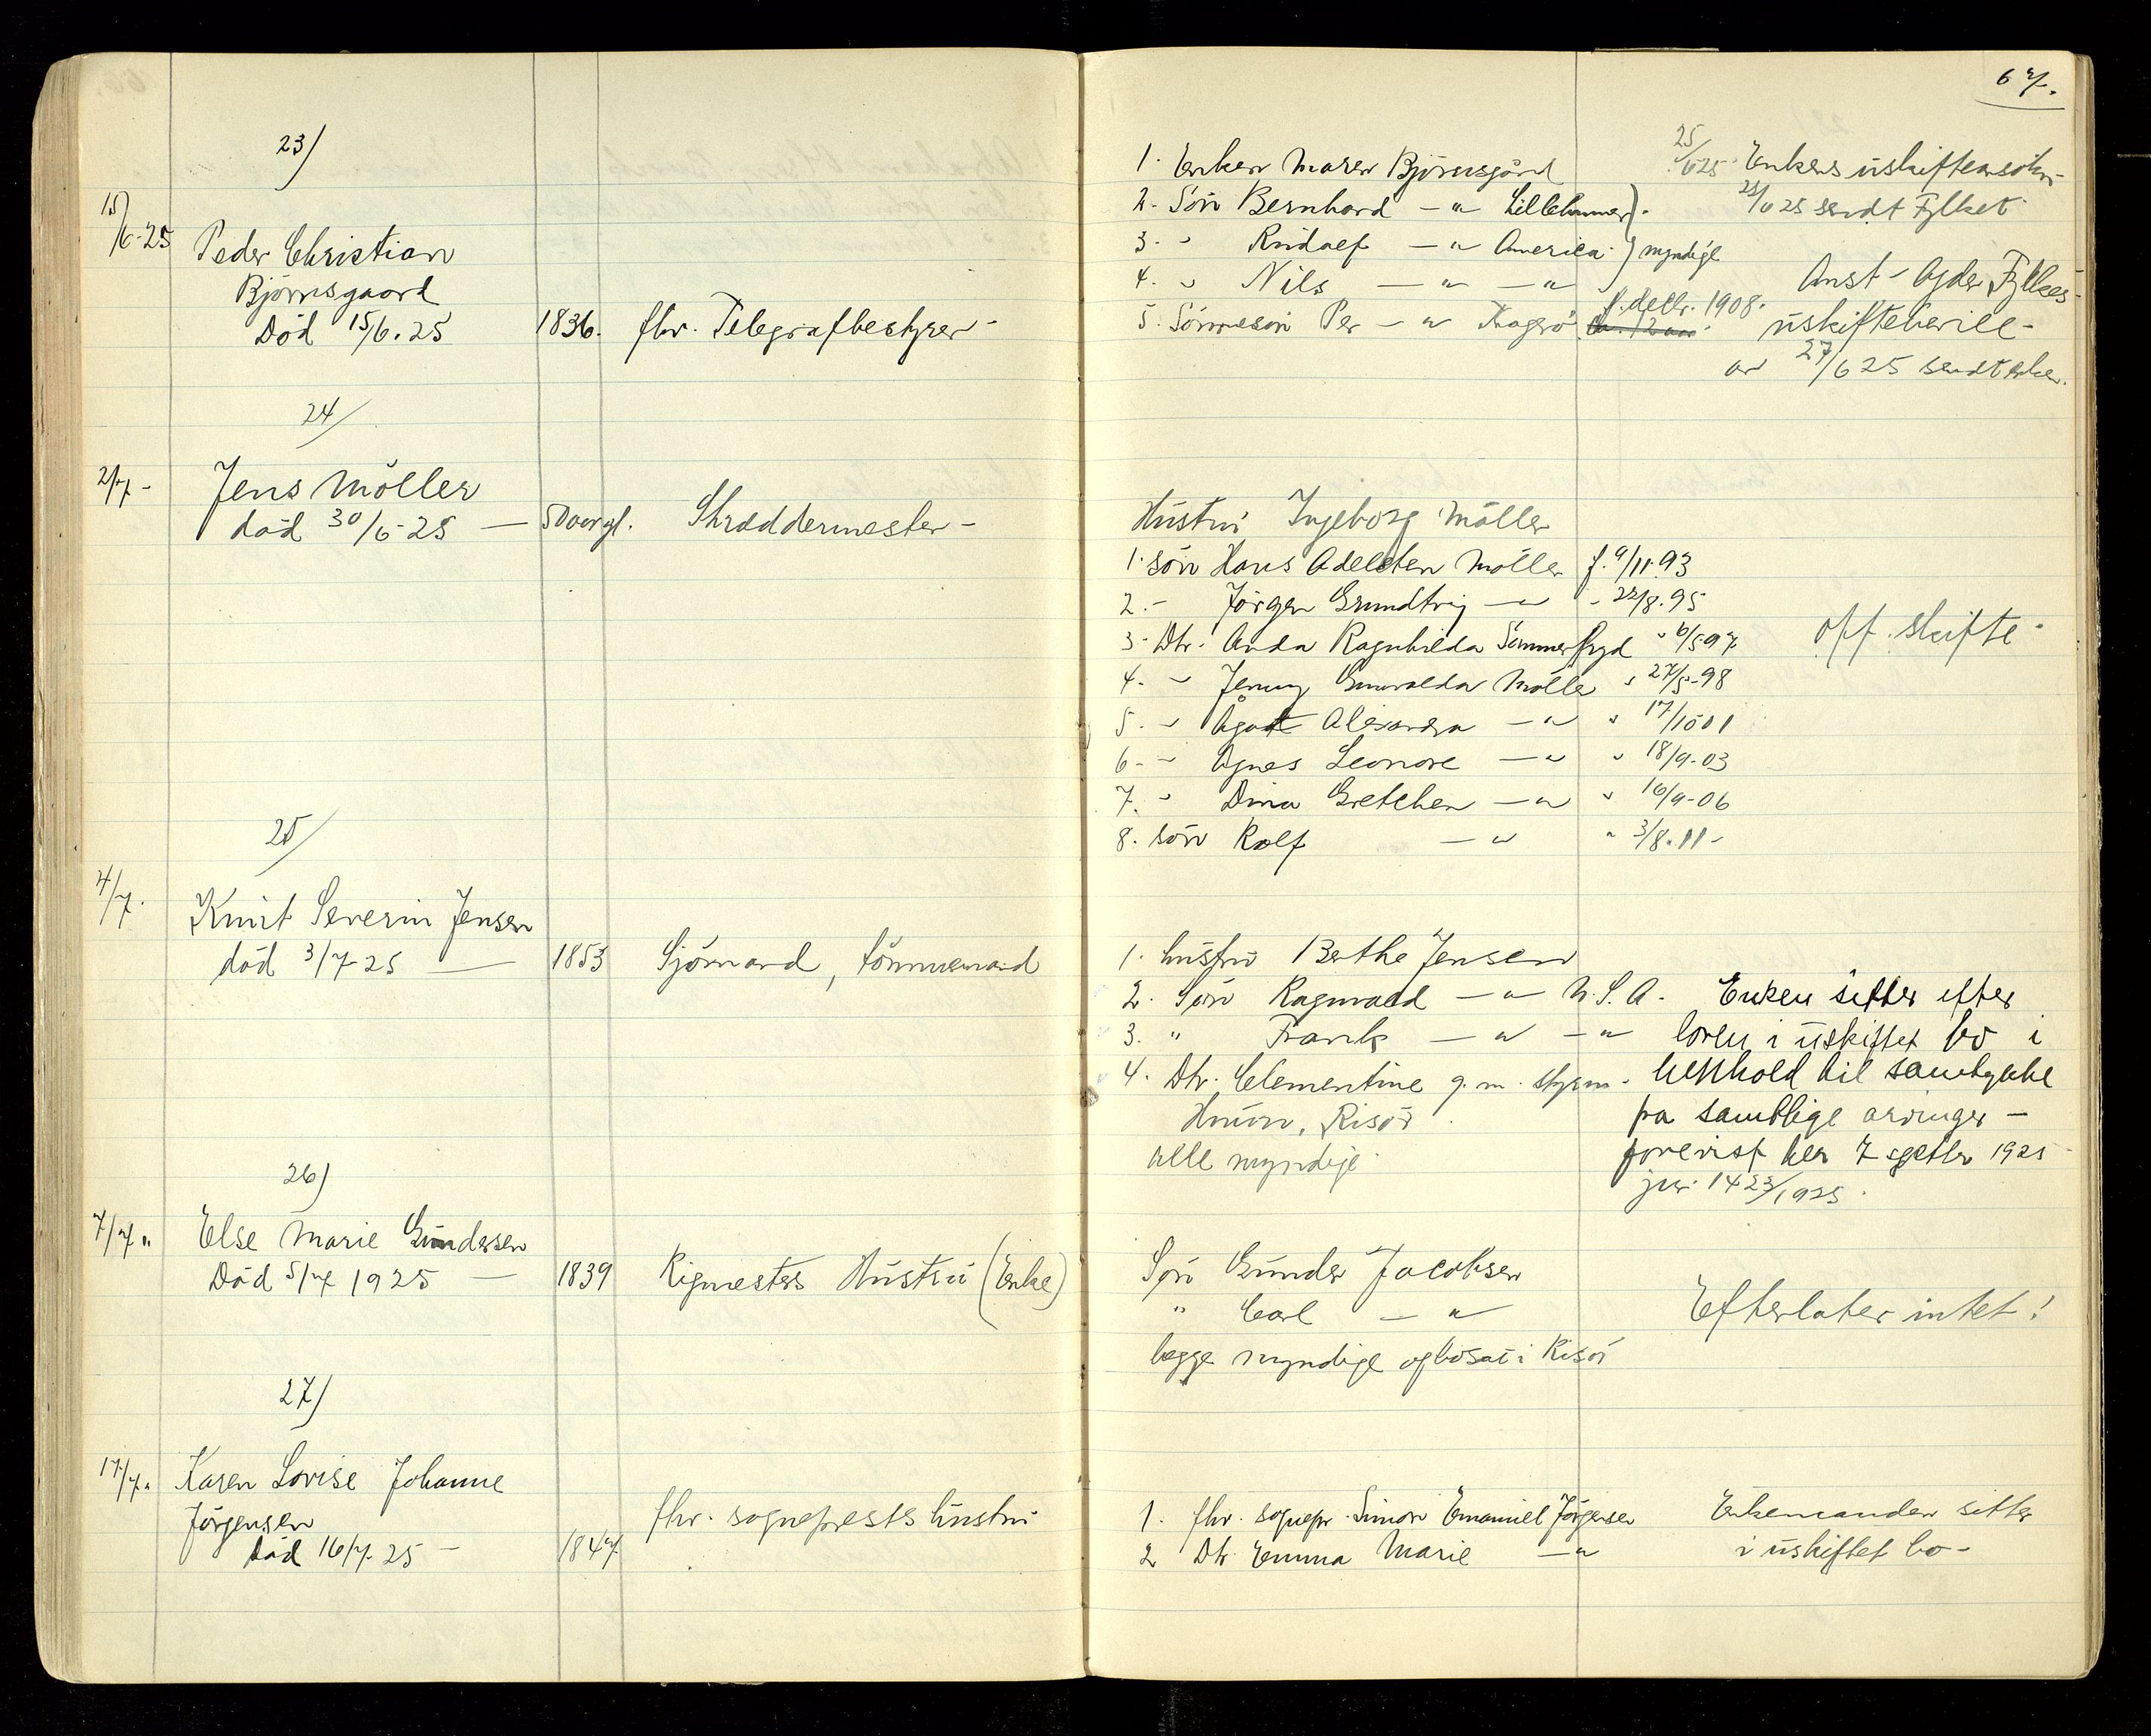 67.
23)
15/6-25 Peder Christian
Björnsgaard
Död 15/6.25 1836. fhv. Telegrafbestyrer -
1. Enken Maren Björnsgård
2. Sön Bernhard - " Lillehammer
3. " Rudolf - " America myndige
4. " Nils - " - "
5. Sönnesön Per - " Kragerö f. decbr. 1908.
25/6 25 Enkens uskifteansökn.
25/6 25 sendt Fylket
Aust-Agder Fylkes-
uskiftebevill-
av 27/6 25 sendt enken.
24/
2/7- Jens Möller
död 30/6-25 — 50 aar gl. Skræddermester -
Hustru Ingeborg Möller
1. sön Hans Adelsten Möller f. 9/11.93
2. - Jörgen Grundtvig - " - 22/8.95
3- Dtr. Anda Ragnhilda Sommerfryd " 6/5 97
4. - " Jenny Gunvalda Möller " 27/5-98
5. - " Ågot Alexandra - " " 17/10 01
6- - Agnes Leonore - " " 18/9-03
7. - " Dina Gretchen - " " 16/9-06
8. sön Rolf - " " 3/8.11-
off. skifte -
25/
4/7. Knut Severin Jensen
död 3/7-25 — 1853 Sjömand, tömmermand
1. hustru Berthe Jensen
2. Sön Ragnvald - " - U.S.A.
3. " Frank - " - "
4. Dtr. Clementine g.m. styrm.
Risör
alle myndige
Enken sitter efter
loven i uskiftet bo i
henhold til samtykke
fra samtlige arvinger -
forevist her 7 septbr 1925
jur. 1423/1925.
26)
7/7 " Else Marie Gundersen
Död 5/7 1925 — 1839 Rigmesters Hustru (Enke)
Sön Gunder Jacobsen
" Carl - "
begge myndige og bosat i Risör
Efterlater intet!
27)
17/7. Karen Lovise Johanne
Jörgensen
död 16/7 25 - 1847. fhv. sogneprests hustru
1. fhv. sognepr. Simon Emanuel Jörgensen
2 Dtr. Emma Marie - "
Enkemanden sitter
i uskiftet bo -